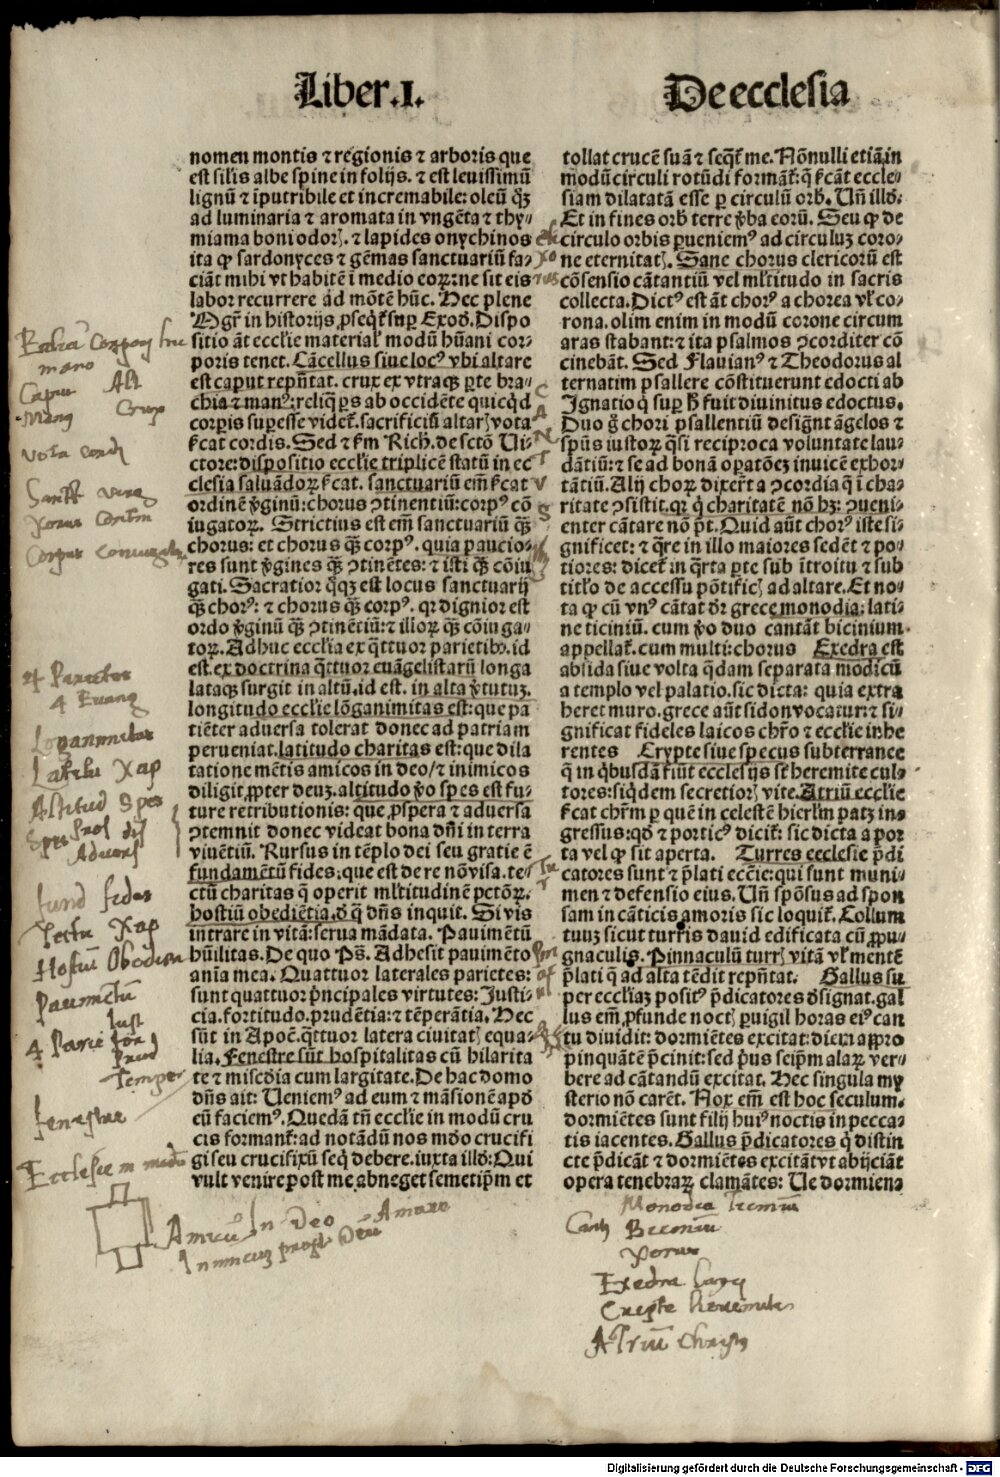 Liber .I.
De ecclesia
nomen montis ⁊ regionis ⁊ arboris que
est silis albe spine in folijs. ⁊ est leuissimũ
lignũ ⁊ ĩputribile et incremabile: oleũ qʒ
ad luminaria ⁊ aromata in vngẽta ⁊ thy⸗
miama boni odorꝭ. ⁊ lapides onychinos
ita ꝙ sardonyces ⁊ gẽmas sanctuariũ fa⸗
ciãt mihi vt habitẽ ĩ medio eoꝝ: ne sit eis
labor recurrere ad mõtẽ hũc. Hec plene
Mgr̃ in historijs ꝓseq̃t̃ suꝑ Exod. Dispo
sitio ãt ecclie material̃ modũ hũani cor⸗
poris tenet. Cãcellus siue locꝰ vbi altare
est caput rep̃ntat. crux ex vtraqʒ ꝑte bra⸗
chia ⁊ manꝰ: reliq̃ ꝑs ab occidẽte quicq̃d
corꝑis suꝑesse videt̃. sacrificiũ altarꝭ vota
s̃cat cordis. Sed ⁊ s̃m Rich. de sctõ Ui⸗
ctore: dispositio ecclie triplicẽ statũ in ec
clesia saluãdoꝝ s̃cat. sanctuariũ em̃ s̃cat
ordinẽ ꝟginũ: chorus ꝯtinentiũ: corpꝰ cõ
iugatoꝝ. Strictius est em̃ sanctuariũ q̃ʒ
chorus: et chorus q̃ʒ corpꝰ. quia paucio⸗
res sunt ꝟgines q̃ʒ ꝯtinẽtes: ⁊ isti q̃ʒ cõiu
gati. Sacratior q̃qʒ est locus sanctuarij
q̃ʒ chorꝰ: ⁊ chorus q̃ʒ corpꝰ. qr dignior est
ordo ꝟginũ q̃ʒ ꝯtinẽtiũ: ⁊ illoꝝ q̃ʒ cõiuga⸗
toꝝ. Adhuc ecclia ex q̃ttuor parietibꝰ. id
est. ex doctrina q̃ttuor euãgelistarũ longa
lataqʒ surgit in altũ. id est. in alta ꝟtutuʒ.
longitudo ecclie lõganimitas est: que pa
tiẽter aduersa tolerat donec ad patriam
perueniat. latitudo charitas est: que dila
tatione mẽtis amicos in deo/ ⁊ inimicos
diligit ꝓpter deuʒ. altitudo ꝟo spes est fu⸗
ture retributionis: que ꝓspera ⁊ aduersa
ꝯtemnit donec videat bona dñi in terra
viuẽtiũ. Rursus in tẽplo dei seu gratie ẽ
fundamẽtũ fides: que est de re nõ visa. te⸗
ctũ charitas q̃ operit ml̃titudinẽ pctõꝝ.
hostiũ obediẽtia. d̃ q̃ dñs inquit. Si vis
intrare in vitã: serua mãdata. Pauimẽtũ
hũilitas. De quo Ps̃. Adhesit pauimẽto
anĩa mea. Quattuor laterales parietes:
sunt quattuor p̃ncipales virtutes: Justi⸗
cia. fortitudo. prudẽtia: ⁊ tẽperãtia. Hec
sũt in Apoc̃. q̃ttuor latera ciuitatꝭ equa⸗
lia. Fenestre sũt hospitalitas cũ hilarita
te ⁊ miscd̃ia cum largitate. De hac domo
dñs ait: Ueniemꝰ ad eum ⁊ mãsionẽ apd̃
eũ faciemꝰ. Quedã tñ ecclie in modũ cru
cis formant̃: ad notãdũ nos mũdo crucifi
gi seu crucifixũ seq̃ debere. iuxta illd̃: Qui
vult venire post me abneget semetip̃m et
tollat crucẽ suã ⁊ seq̃t̃ me. Nõnulli etiã in
modũ circuli rotũdi formãt̃: q̃ s̃cãt eccle⸗
siam dilatatã esse ꝑ circulũ orbꝭ. Uñ illd̃.
Et in fines orbꝭ terre ꝟba eorũ. Seu ꝙ de
circulo orbis ꝑueniemꝰ ad circuluʒ coro⸗
ne eternitatꝭ. Sane chorus clericorũ est
cõsensio cãtantiũ vel ml̃titudo in sacris
collecta. Dictꝰ est ãt chorꝰ a chorea vl̃ co⸗
rona. olim enim in modũ corone circum
aras stabant: ⁊ ita psalmos ꝯcorditer cõ
cinebãt. Sed Flauianꝰ ⁊ Theodorus al
ternatim psallere cõstituerunt edocti ab
Ignatio q̃ suꝑ h̃ fuit diuinitus edoctus.
Duo g̃ chori psallentiũ designt̃ ãgelos ⁊
spũs iustoꝝ q̃si reciproca voluntate lau⸗
dãtiũ: ⁊ se ad bonã oꝑatõeʒ inuicẽ exhor⸗
tãtiũ. Alij choꝝ dixer̃t a ꝯcordia q̃ ĩ cha⸗
ritate ꝯsistit. qr q̃ charitatẽ nõ hʒ: ꝯueni⸗
enter cãtare nõ p̃t. Quid aũt chorꝰ iste si⸗
gnificet: ⁊ q̃re in illo maiores sedẽt ⁊ po⸗
tiores: dicet̃ in q̃rta ꝑte sub ĩtroitu ⁊ sub
titl̃o de accessu põtificꝭ ad altare. Et no⸗
ta ꝙ cũ vnꝰ cãtat dr̃ grece monodia: lati⸗
ne ticiniũ. cum ꝟo duo cantãt bicinium
appellat̃. cum multi: chorus Exedra est
absida siue volta q̃dam separata modicũ
a templo vel palatio. sic dicta: quia extra
heret muro. grece aũt sidon vocatur: ⁊ si⸗
gnificat fideles laicos chr̃o ⁊ ecclie inhe
rentes Crypte siue specus subterrance
q̃ in q̃busdã fiũt ecclesijs s̃t heremite cul⸗
tores: siq̃dem secretiorꝭ vite. Atriũ ecclie
s̃cat chr̃m ꝑ quẽ in celestẽ hierl̃m patʒ in⸗
gressus: qd̃ ⁊ porticꝰ dicit̃: sic dicta a por
ta vel ꝙ sit aperta. Turres ecclesie p̃di
catores sunt ⁊ p̃lati eccẽie: qui sunt muni⸗
men ⁊ defensio eius. Uñ spõsus ad spon
sam in cãticis amoris sic loquit̃. Collum
tuuʒ sicut turris dauid edificata cũ ꝓpu⸗
gnaculis. Pinnaculũ turrꝭ vitã vl̃ mentẽ
p̃lati q̃ ad alta tẽdit rep̃ntat. Gallus su
per eccliaʒ positꝰ p̃dicatores d̃signat. gal
lus em̃ ꝓfunde noctꝭ ꝑuigil horas eiꝰ can
tu diuidit: dormiẽtes excitat: diem appro
pinquãtẽ p̃cinit: sed p̃us seip̃m alaꝝ ver⸗
bere ad cãtandũ excitat. Hec singula my
sterio nõ carẽt. Nox em̃ est hoc seculum.
dormiẽtes sunt filij huiꝰ noctis in pecca⸗
tis iacentes. Gallus p̃dicatores q̃ distin
cte p̃dicãt ⁊ dormiẽtes excitãt vt abijciãt
opera tenebraꝝ clamãtes: Ue dormiens
Caput Alt
Manꝰ Crux
vota cordꝭ
4 Parietes
4 Euang
fund fides
Hostiũ Obedien
Pauimẽtũ
Just
4 Parie for
Prud
Temper
fenestrae
Ecclesie in modũ
Amicũ In Deo Amare
Inimicuʒ propt Deũ
Monodia Ticiniũ
Biciniũ
Exedra
ATriũ
Digitalisierung gefördert durch die Deutsche Forschungsgemeinschaft - DFG